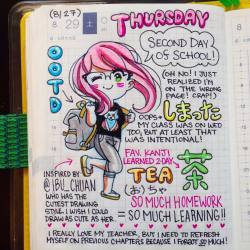 (8/27)
8
29
土
THURSDAY
OOTD
SECOND DAY
OF SCHOOL!
(OH NO! I JUST
REALIZED I'M
ON THE WRONG
PAGE! CRAP!)
OOPS
しまった
MY CLASS WAS ON WED
TOO, BUT AT LEAST THAT
WAS INTENTIONAL!
FAV. KANJI
LEARNED 2-DAY
茶
TEA
(おちゃ)
INSPIRED BY
@IBU_CHUAN
WHO HAS THE
CUTEST DRAWING
STYLE. I WISH I COULD
DRAW AS CUTE AS HER
SO MUCH HOMEWORK
= SO MUCH LEARNING!!
I REALLY LOVE MY TEACHER, BUT I NEED TO REFRESH
MYSELF ON PREVIOUS CHAPTERS BECAUSE I FORGOT SO MUCH!